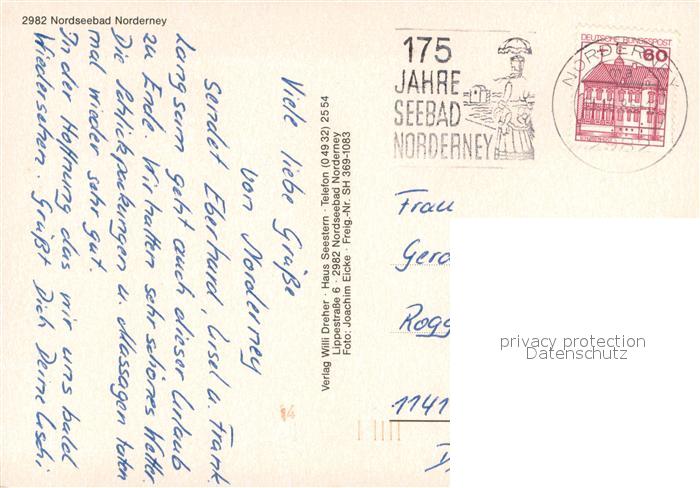 2982 Nordseebad Norderney
Viele liebe Grüße
von Norderney
sendet Eberhard, Ursel u. Frank
Langsam geht auch dieser Urlaub
zu Ende. Wir hatten sehr schönes Wetter.
Die Schlickpackungen u. Massagen taten
mal wieder sehr gut.
In der Hoffnung das wir uns bald
Wiedersehen. Grüßt Dich Deine Uschi
Verlag Willi Dreher · Haus Seestern · Telefon (04932) 25 54
Lippestraße 6 · 2982 Nordseebad Norderney
Foto: Joachim Eicke · Freig.-Nr. SH 369-1083
175
JAHRE
SEEBAD
NORDERNEY
DEUTSCHE BUNDESPOST
60
NORDERNEY
Frau
Gero
Rogg
1141
privacy protection
Datenschutz